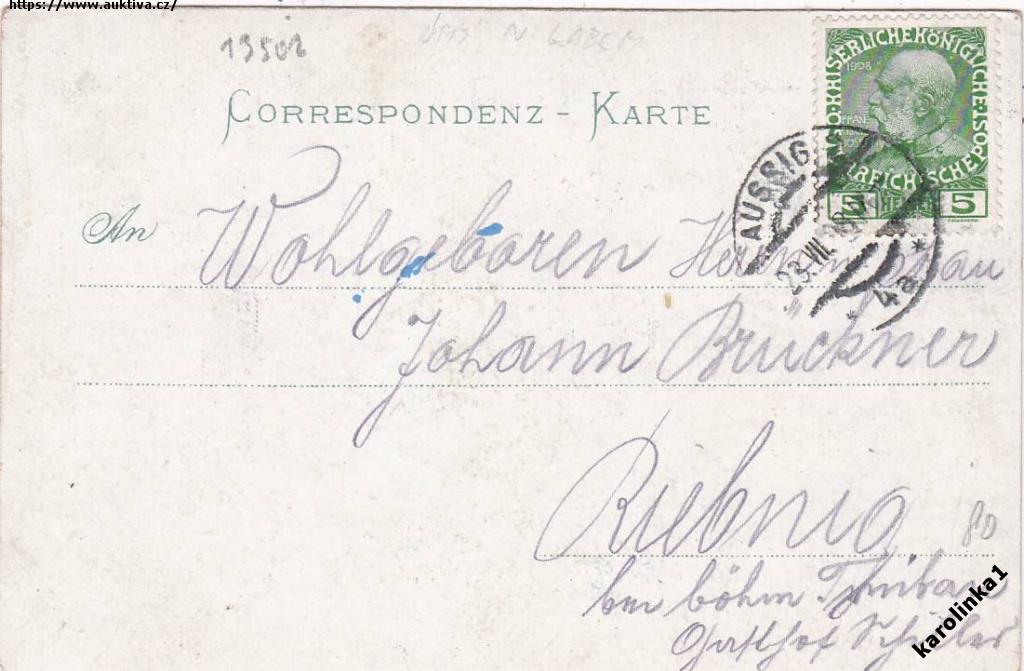 https://www.auktiva.cz/
13502
ÚSTÍ N LABEM
CORRESPONDENZ - KARTE
KAISERLICHE KÖNIGLICHE POST
1908
5 HELLER 5
AUSSIG
28.VII.
* 4a *
An Wohlgeboren Herrn
Johann Brückner
80
bei böhm
Gasthof Schiller
karolinka1